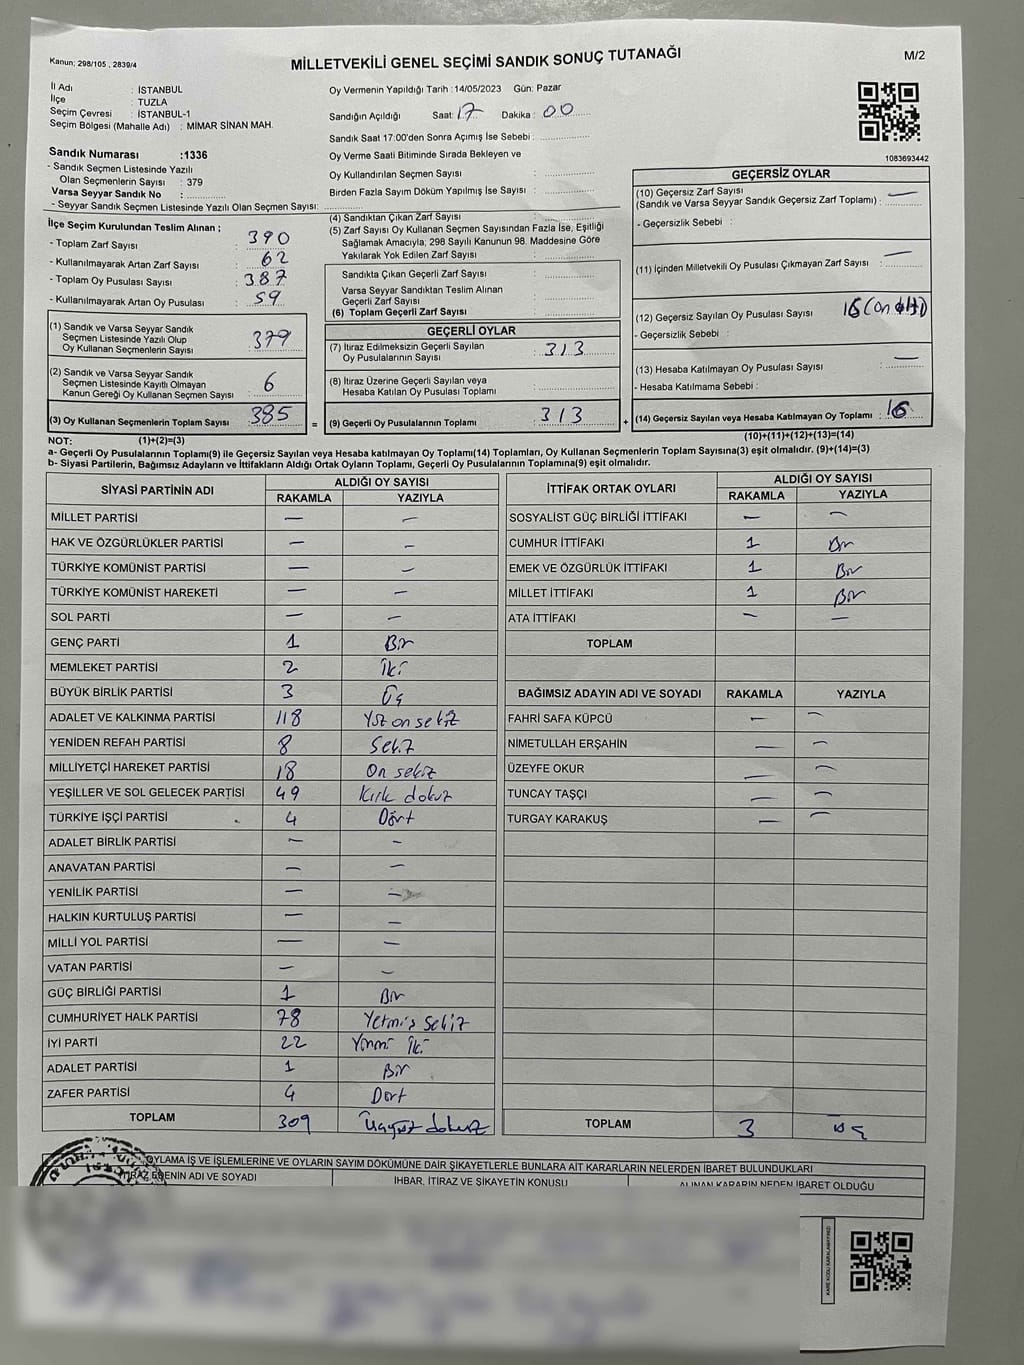 Kanun; 298/105 , 2839/4
MİLLETVEKİLİ GENEL SEÇİMİ SANDIK SONUÇ TUTANAĞI
M/2
İl Adı : İSTANBUL
İlçe : TUZLA
Seçim Çevresi : İSTANBUL-1
Seçim Bölgesi (Mahalle Adı) : MİMAR SİNAN MAH.
Sandık Numarası :1336
- Sandık Seçmen Listesinde Yazılı
Olan Seçmenlerin Sayısı : 379
Varsa Seyyar Sandık No :
- Seyyar Sandık Seçmen Listesinde Yazılı Olan Seçmen Sayısı:
Oy Vermenin Yapıldığı Tarih :14/05/2023 Gün: Pazar
Sandığın Açıldığı Saat: 17 Dakika: 00
Sandık Saat 17:00'den Sonra Açımış İse Sebebi :
Oy Verme Saati Bitiminde Sırada Bekleyen ve
Oy Kullandırılan Seçmen Sayısı :
Birden Fazla Sayım Döküm Yapılmış İse Sayısı :
1083693442
İlçe Seçim Kurulundan Teslim Alınan ;
- Toplam Zarf Sayısı : 390
- Kullanılmayarak Artan Zarf Sayısı : 62
- Toplam Oy Pusulası Sayısı : 387
- Kullanılmayarak Artan Oy Pusulası : 59
(1) Sandık ve Varsa Seyyar Sandık
Seçmen Listesinde Yazılı Olup
Oy Kullanan Seçmenlerin Sayısı : 379
(2) Sandık ve Varsa Seyyar Sandık
Seçmen Listesinde Kayıtlı Olmayan
Kanun Gereği Oy Kullanan Seçmen Sayısı : 6
(3) Oy Kullanan Seçmenlerin Toplam Sayısı : 385 =
(4) Sandıktan Çıkan Zarf Sayısı :
(5) Zarf Sayısı Oy Kullanan Seçmen Sayısından Fazla İse, Eşitliği
Sağlamak Amacıyla; 298 Sayılı Kanunun 98. Maddesine Göre
Yakılarak Yok Edilen Zarf Sayısı :
Sandıkta Çıkan Geçerli Zarf Sayısı :
Varsa Seyyar Sandıktan Teslim Alınan
Geçerli Zarf Sayısı :
(6) Toplam Geçerli Zarf Sayısı :
GEÇERLİ OYLAR
(7) İtiraz Edilmeksizin Geçerli Sayılan
Oy Pusulalarının Sayısı : 313
(8) İtiraz Üzerine Geçerli Sayılan veya
Hesaba Katılan Oy Pusulası Toplamı :
(9) Geçerli Oy Pusulalarının Toplamı : 313 +
GEÇERSİZ OYLAR
(10) Geçersiz Zarf Sayısı —
(Sandık ve Varsa Seyyar Sandık Geçersiz Zarf Toplamı) :
- Geçersizlik Sebebi :
(11) İçinden Milletvekili Oy Pusulası Çıkmayan Zarf Sayısı : —
(12) Geçersiz Sayılan Oy Pusulası Sayısı : 16 (on altı)
- Geçersizlik Sebebi :
(13) Hesaba Katılmayan Oy Pusulası Sayısı : —
- Hesaba Katılmama Sebebi :
(14) Geçersiz Sayılan veya Hesaba Katılmayan Oy Toplamı : 16
NOT: (1)+(2)=(3)
(10)+(11)+(12)+(13)=(14)
a- Geçerli Oy Pusulalarının Toplamı(9) ile Geçersiz Sayılan veya Hesaba katılmayan Oy Toplamı(14) Toplamları, Oy Kullanan Seçmenlerin Toplam Sayısına(3) eşit olmalıdır. (9)+(14)=(3)
b- Siyasi Partilerin, Bağımsız Adayların ve İttifakların Aldığı Ortak Oyların Toplamı, Geçerli Oy Pusulalarının Toplamına(9) eşit olmalıdır.
SİYASİ PARTİNİN ADI ALDIĞI OY SAYISI
RAKAMLA YAZIYLA
MİLLET PARTİSİ — —
HAK VE ÖZGÜRLÜKLER PARTİSİ — —
TÜRKİYE KOMÜNİST PARTİSİ — —
TÜRKİYE KOMÜNİST HAREKETİ — —
SOL PARTİ — —
GENÇ PARTİ 1 Bir
MEMLEKET PARTİSİ 2 İki
BÜYÜK BİRLİK PARTİSİ 3 Üç
ADALET VE KALKINMA PARTİSİ 118 Yüz on sekiz
YENİDEN REFAH PARTİSİ 8 Sekiz
MİLLİYETÇİ HAREKET PARTİSİ 18 On sekiz
YEŞİLLER VE SOL GELECEK PARTİSİ 49 Kırk dokuz
TÜRKİYE İŞÇİ PARTİSİ 4 Dört
ADALET BİRLİK PARTİSİ — —
ANAVATAN PARTİSİ — —
YENİLİK PARTİSİ — —
HALKIN KURTULUŞ PARTİSİ — —
MİLLİ YOL PARTİSİ — —
VATAN PARTİSİ — —
GÜÇ BİRLİĞİ PARTİSİ 1 Bir
CUMHURİYET HALK PARTİSİ 78 Yetmiş sekiz
İYİ PARTİ 22 Yirmi iki
ADALET PARTİSİ 1 Bir
ZAFER PARTİSİ 4 Dört
TOPLAM 309 Üçyüz dokuz
İTTİFAK ORTAK OYLARI ALDIĞI OY SAYISI
RAKAMLA YAZIYLA
SOSYALİST GÜÇ BİRLİĞİ İTTİFAKI — —
CUMHUR İTTİFAKI 1 Bir
EMEK VE ÖZGÜRLÜK İTTİFAKI 1 Bir
MİLLET İTTİFAKI 1 Bir
ATA İTTİFAKI — —
TOPLAM
BAĞIMSIZ ADAYIN ADI VE SOYADI RAKAMLA YAZIYLA
FAHRİ SAFA KÜPCÜ — —
NİMETULLAH ERŞAHİN — —
ÜZEYFE OKUR — —
TUNCAY TAŞÇI — —
TURGAY KARAKUŞ — —
TOPLAM 3 üç
OYLAMA İŞ VE İŞLEMLERİNE VE OYLARIN SAYIM DÖKÜMÜNE DAİR ŞİKAYETLERLE BUNLARA AİT KARARLARIN NELERDEN İBARET BULUNDUKLARI
İTİRAZ EDENİN ADI VE SOYADI İHBAR, İTİRAZ VE ŞİKAYETİN KONUSU ALINAN KARARIN NEDEN İBARET OLDUĞU
KARE KODU KARALAMAYINIZ!